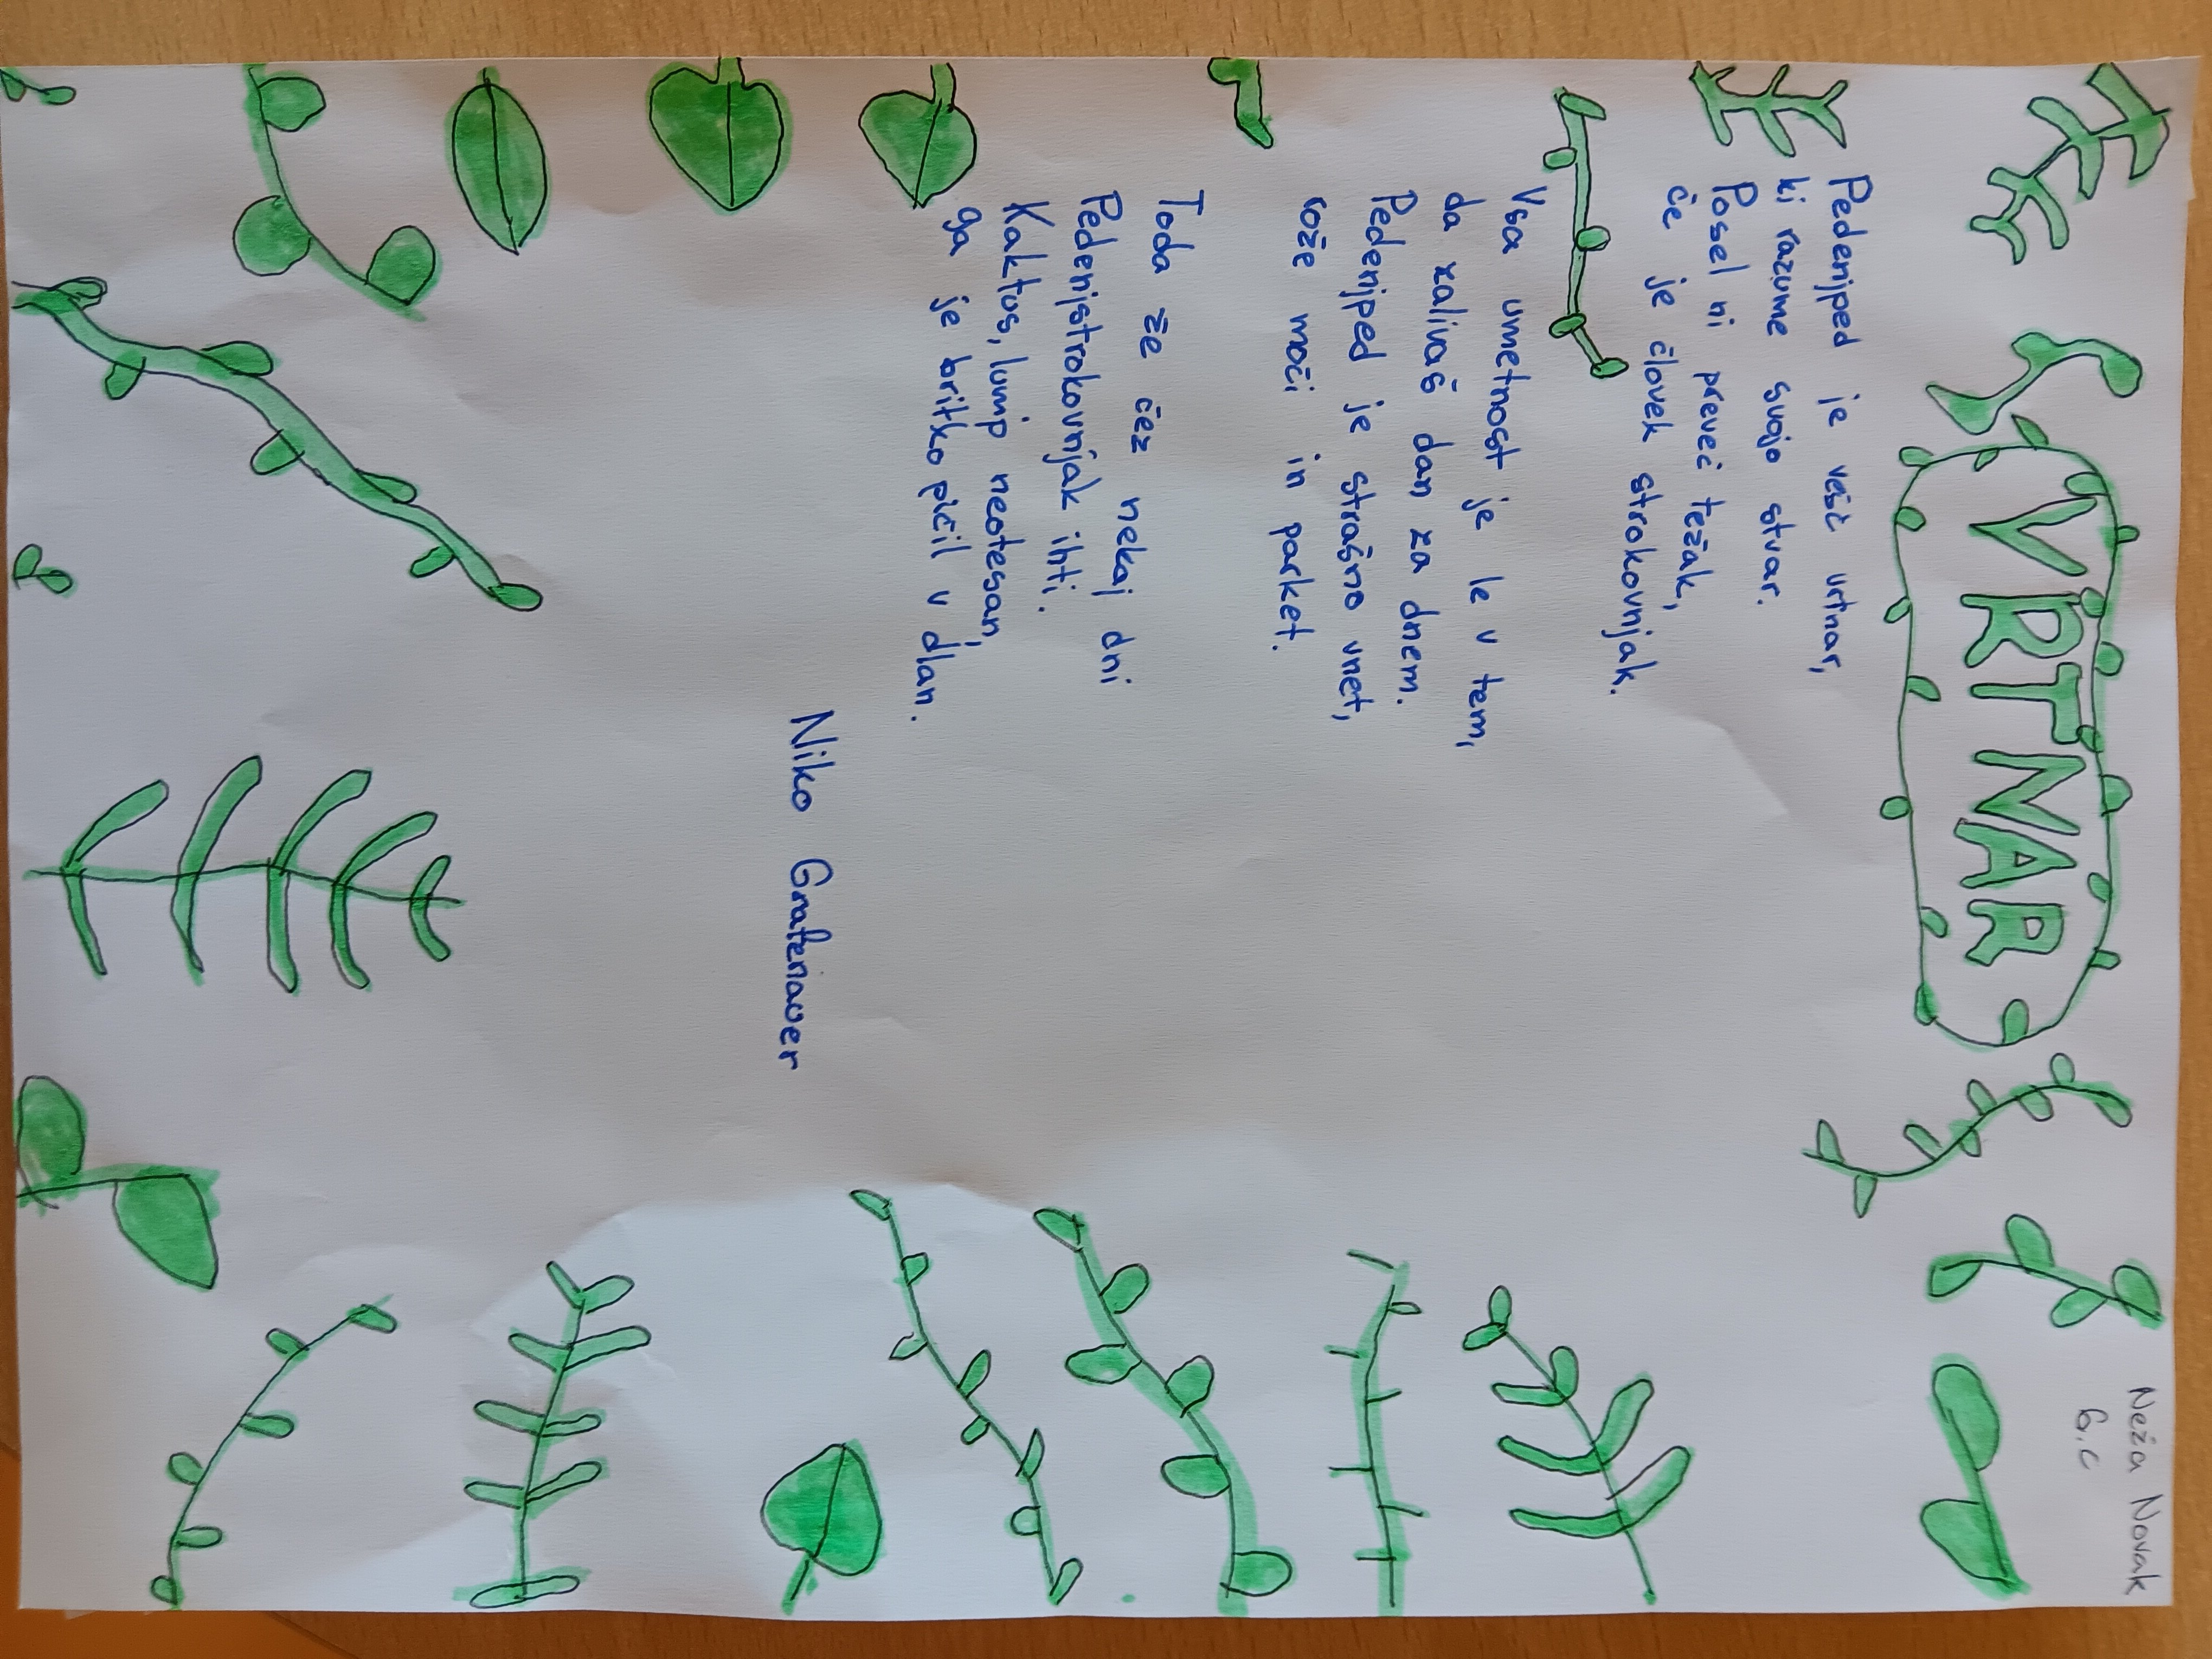 Neža Novak
6.c
VRTNAR
Pedenjped je vešč vrtnar,
ki razume svojo stvar.
Posel ni preveč težak,
če je človek strokovnjak.
Vsa umetnost je le v tem,
da zalivaš dan za dnem.
Pedenjped je strašno vnet,
rože moči in parket.
Toda že čez nekaj dni
Pedenjstrokovnjak ihti.
Kaktos, lump neotesan,
ga je britko pičil v dlan.
Niko Grafenauer